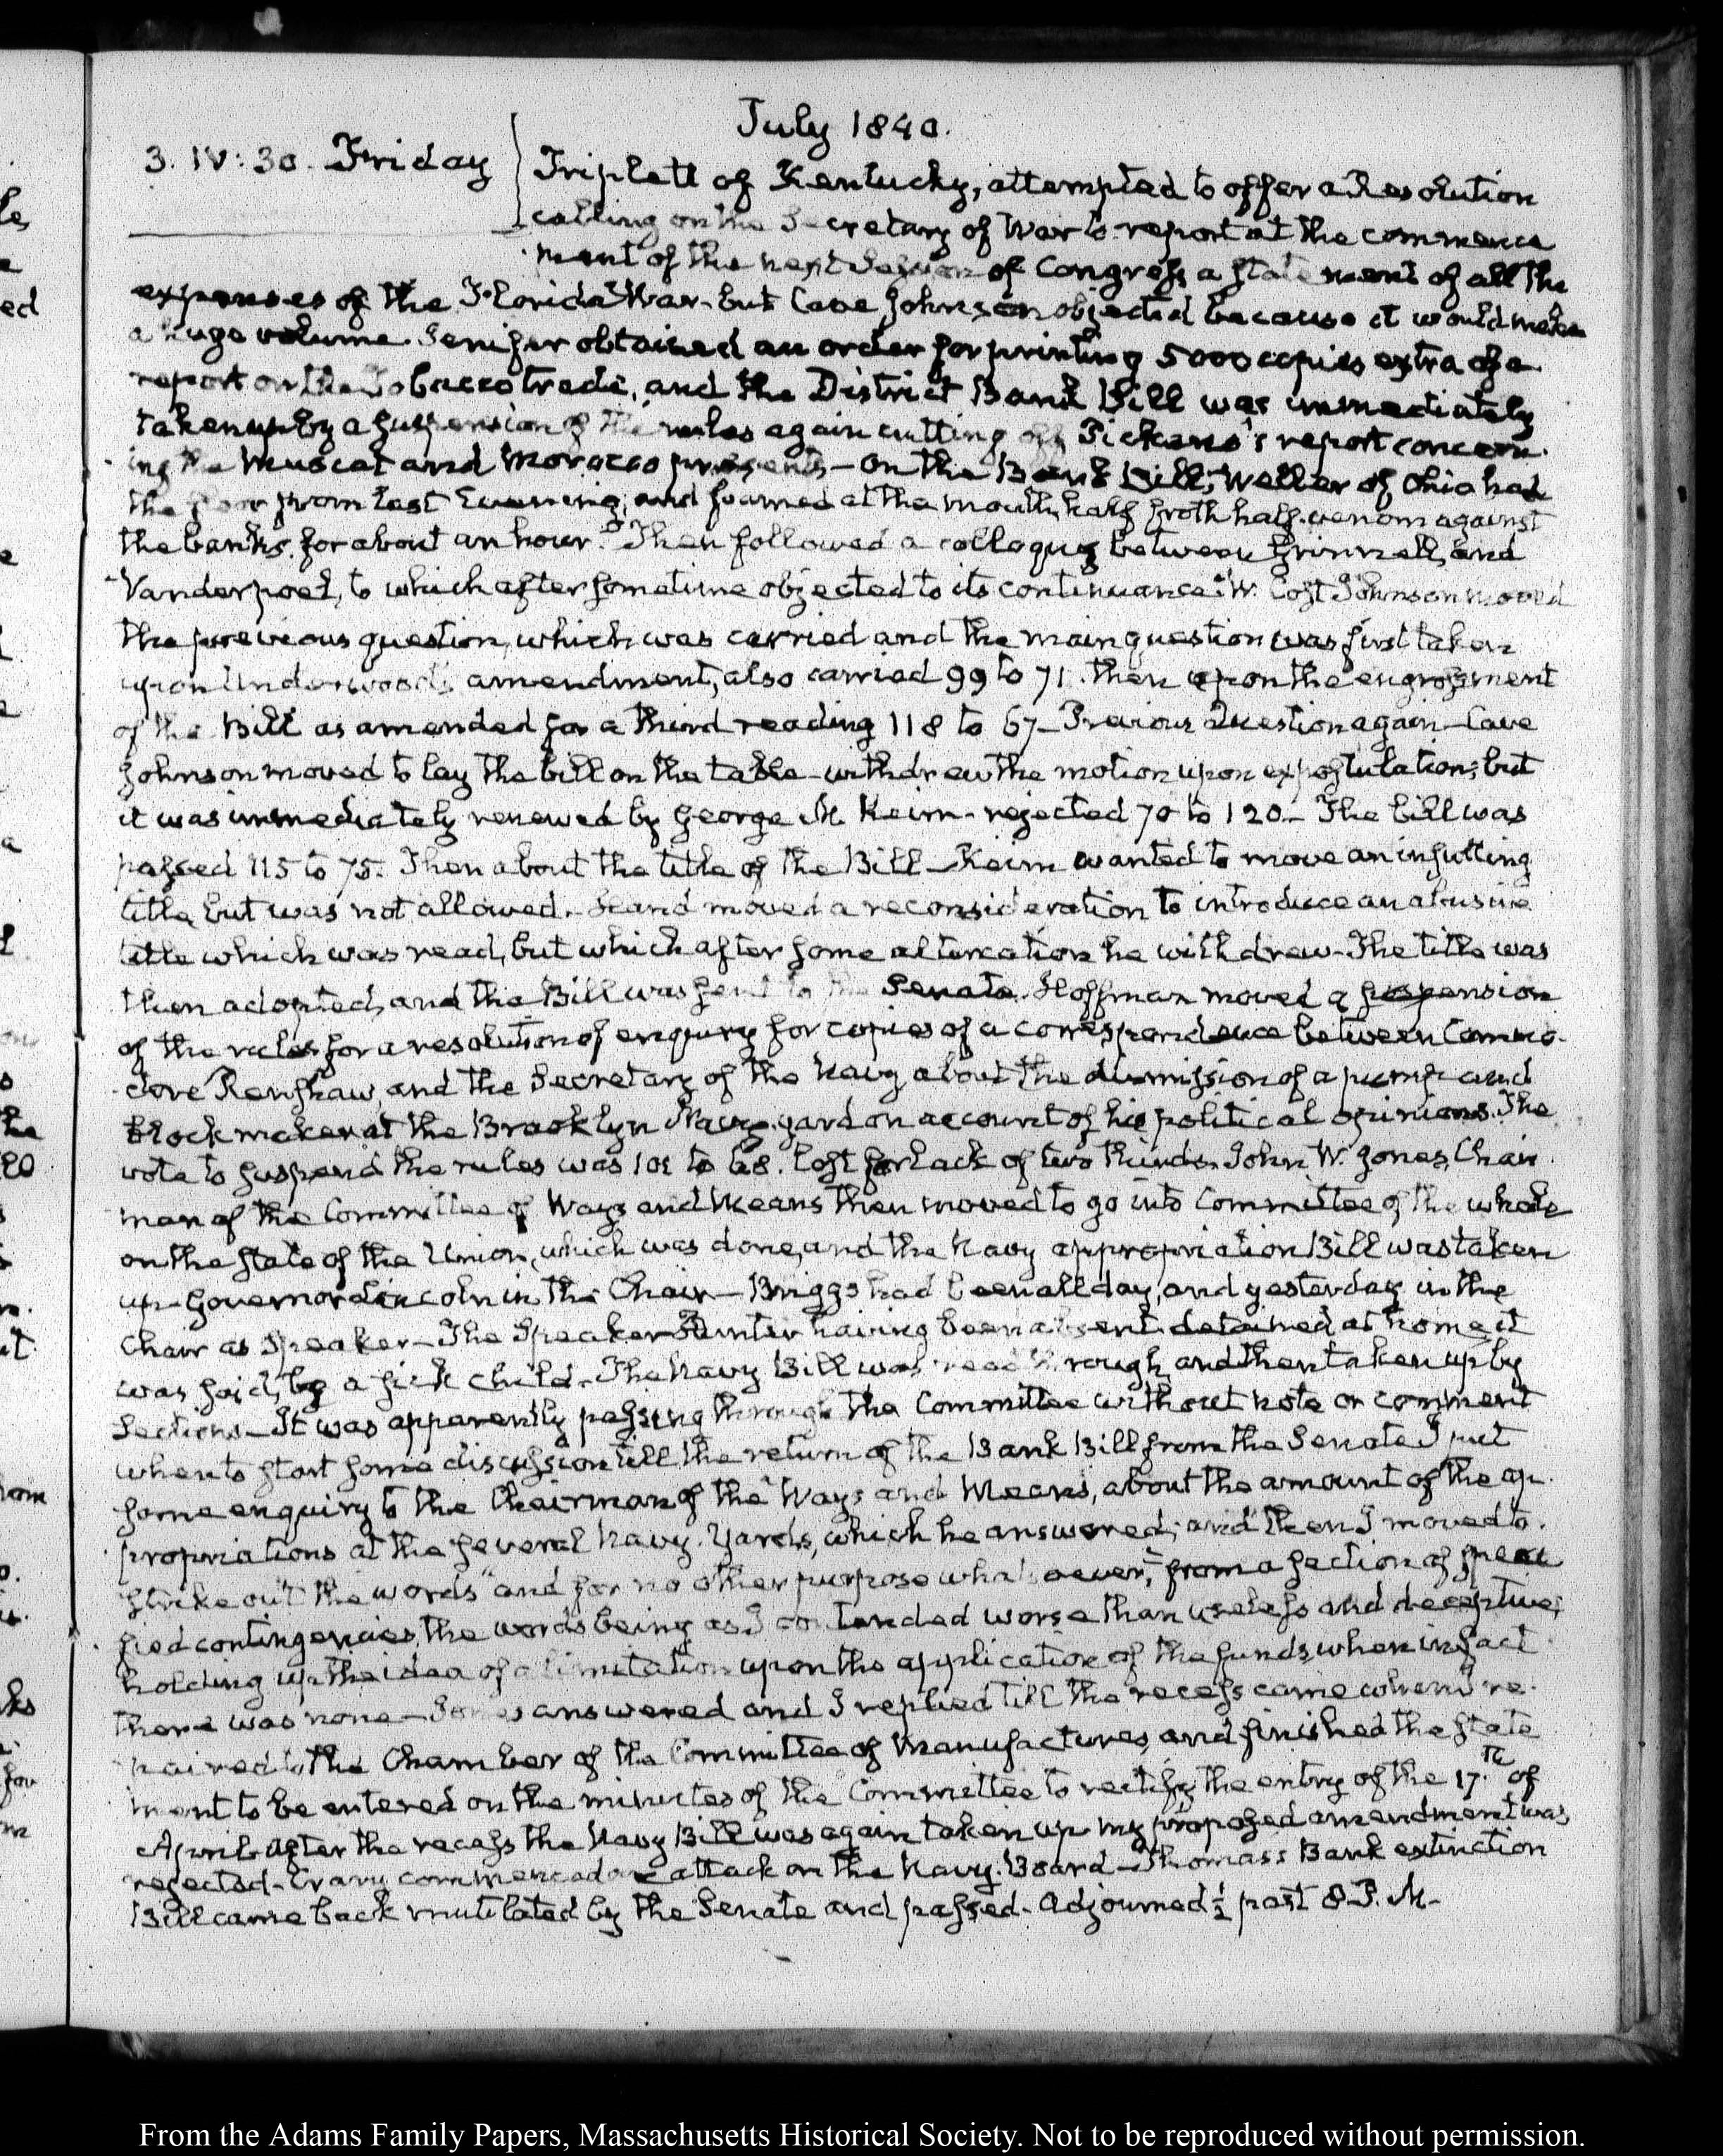 July 1840.
3. IV: 30. Friday
Triplett of Kentucky, attempted to offer a Resolution
calling on the Secretary of War to report at the commence
ment of the next Session of Congress a statement of all the
expenses of the Florida War. but Cave Johnson objected because it would make
a huge volume. Jenifer obtained an order for printing 5000 copies extra of a
report on the Tobacco trade, and the District Bank Bill was immediately
taken up by a suspension of the rules again cutting off Pickens's report concern-
ing the Muscat and Morocco presents – On the Bank Bill, Weller of Ohio had
the floor from last Evening, and foamed at the mouth, half froth half venom against
the banks, for about an hour. Then followed a colloquy between Grinnell, and
Vanderpoel, to which after sometime objected to its continuance. W. Cost Johnson moved
the previous question, which was carried and the main question was first taken
upon Underwood's amendment, also carried 99 to 71. then upon the engrossment
of the Bill as amended for a third reading 118 to 67 – Previous Question again – Cave
Johnson moved to lay the bill on the table – withdrew the motion upon expostulation; but
it was immediately renewed by George M. Keim – rejected 70 to 120 – The bill was
passed 115 to 75. Then about the title of the Bill – Keim wanted to move an insulting
title, but was not allowed. Hand moved a reconsideration to introduce an abusive
title which was read, but which after some altercation he withdrew – The title was
then adopted, and the Bill was sent to the Senate. Hoffman moved a suspension
of the rules for a resolution of enquiry for copies of a correspondence between Commo-
dore Renshaw and the Secretary of the Navy about the dismission of a pump and
block maker at the Brooklyn Navy-yard on account of his political opinions. The
vote to suspend the rules was 101 to 68. lost for lack of two thirds. John W. Jones, Chair
man of the Committee of Ways and Means then moved to go into Committee of the whole
on the state of the Union, which was done, and the Navy appropriation Bill was taken
up – Governor Lincoln in the Chair – Briggs had been all day, and yesterday in the
Chair as Speaker – The Speaker Hunter having been absent detained at home it
was said, by a sick child. The Navy Bill was read through, and then taken up by
Sections – It was apparently passing through the Committee without note or comment
when to start some discussion till the return of the Bank Bill from the Senate I put
some enquiry to the Chairman of the Ways and Means, about the amount of the ap-
propriations at the several Navy-Yards, which he answered; and then I moved to
strike out the words "and for no other purpose whatsoever," from a section of speci
fied contingencies, the words being as I contended worse than useless and deceptive;
holding up the idea of a limitation upon the application of the funds, when in fact
there was none – Jones answered and I replied till the recess came when I re-
paired to the Chamber of the Committee of Manufactures, and finished the state
ment to be entered on the minutes of the Committee to rectify the entry of the 17.th of
April. After the recess the Navy Bill was again taken up my proposed amendment was
rejected – Crary commenced an attack on the Navy-Board – Thomas's Bank extinction
Bill came back mutilated by the Senate and passed. Adjourned ½ past 8 P. M.
From the Adams Family Papers, Massachusetts Historical Society. Not to be reproduced without permission.